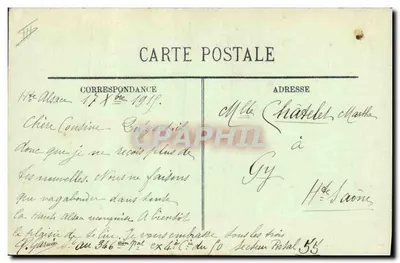 CARTE POSTALE
CORRESPONDANCE
ADRESSE
Hte Alsace 17 Xbre 1915.
Chère Cousine
donc que je ne reçois plus de
tes nouvelles. Nous ne faisons
que vagabonder dans toute
la haute Alsace A bientôt
le plaisir de te lire. Je vous embrasse tous les trois
au 346 4e Cie du 50 Secteur Postal 55
CPAPHIL
Mlle Châtelet Marthe
à
Gy
Hte Saône